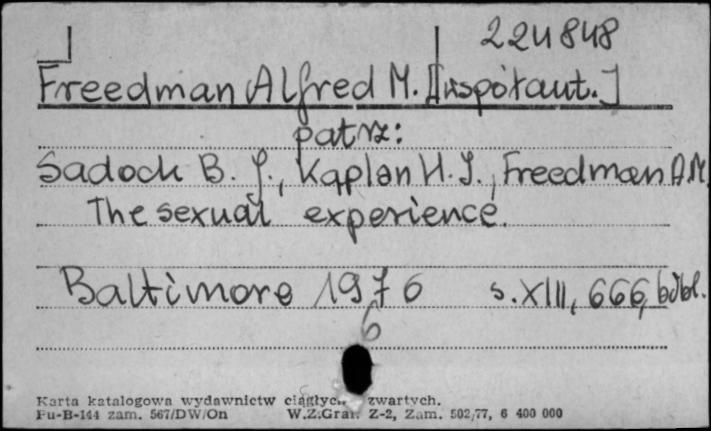 224848
Freedman Alfred M. [współaut.]
patrz:
Sadock B. J., Kaplan H. I., Freedman A.M.
The sexual experience.
Baltimore 1976 s. XIII, 666, bibl.
6
Karta katalogowa wydawnictw ciągłych zwartych.
Pu-B-144 zam. 567/DW/On W.Z.Graf. Z-2, Zam. 502/77, 6 400 000